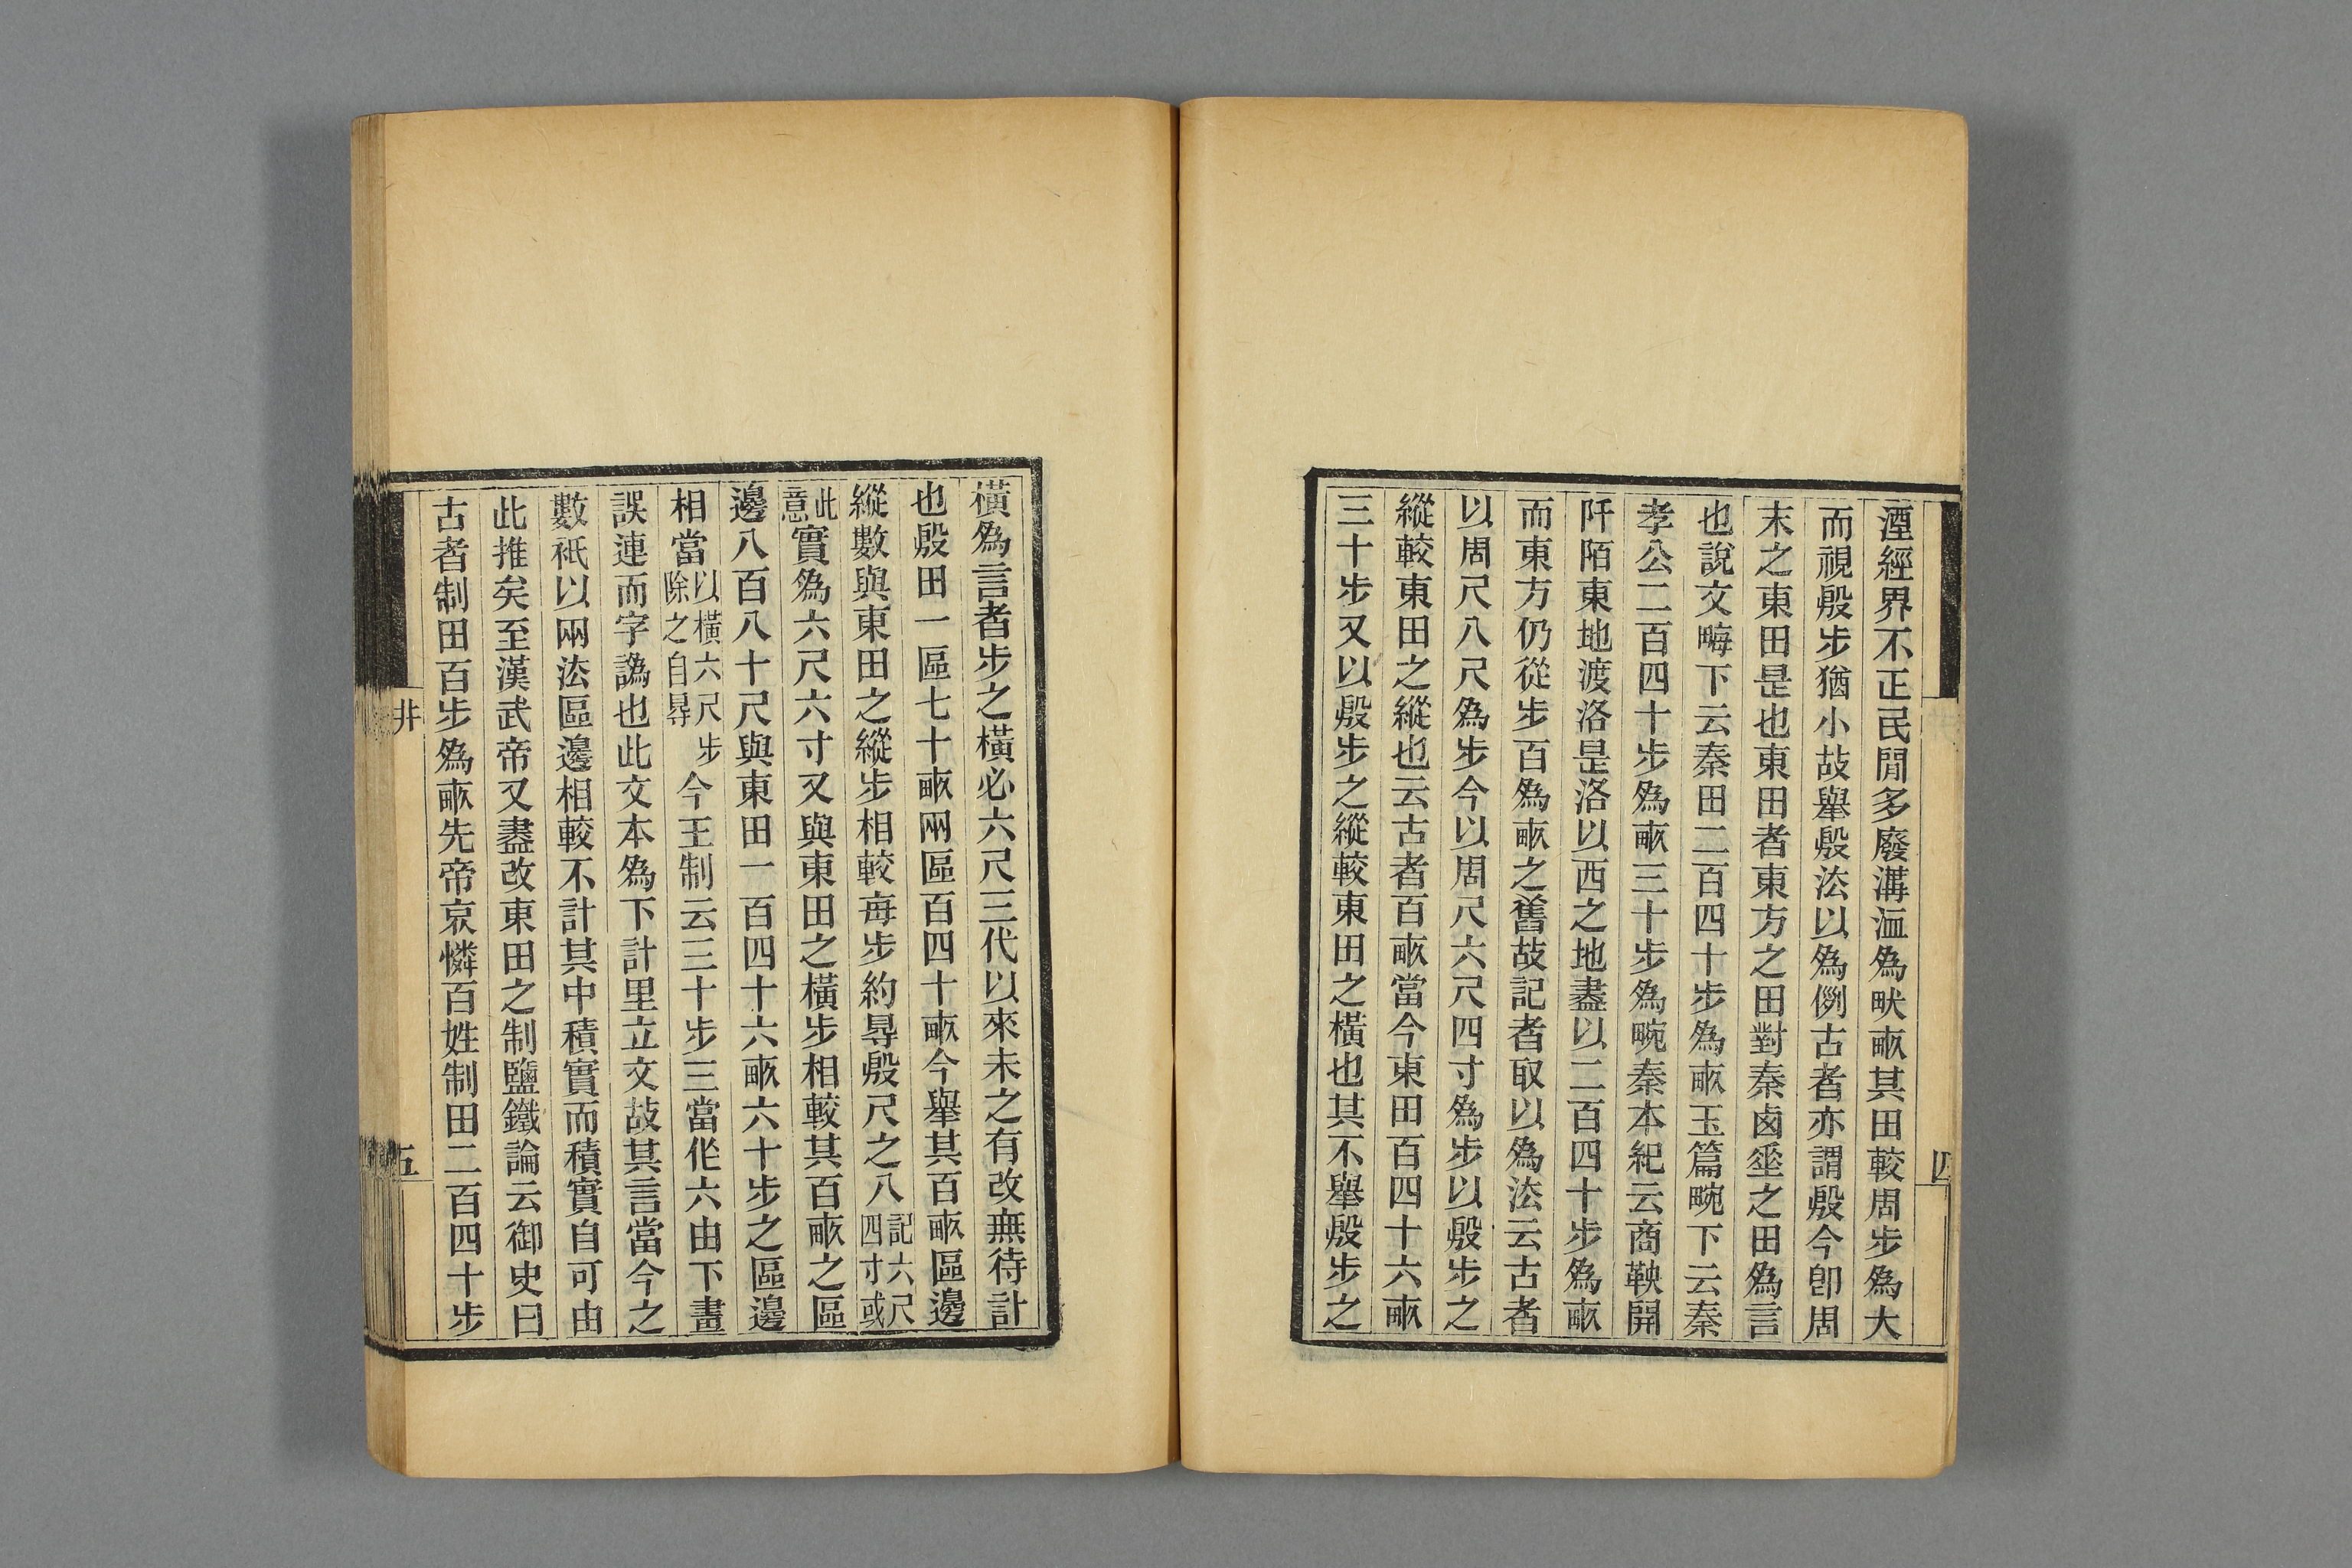 湮經界不正民閒多廢溝洫為畎畞其田較周步為大
而視殷步猶小故舉殷法以為例古者亦謂殷今卽周
末之東田是也東田者東方之田對秦鹵埊之田為言
也說文畮下云秦田二百四十步為畞玉篇畹下云秦
孝公二百四十步為畞三十步為畹秦本紀云商鞅開
阡陌東地渡洛是洛以西之地盡以二百四十步為畞
而東方仍從步百為畞之舊故記者取以為法云古者
以周尺八尺為步今以周尺六尺四寸為步以殷步之
縱較東田之縱也云古者百畞當今東田百四十六畞
三十步又以殷步之縱較東田之橫也其不舉殷步之
四
橫為言者步之橫必六尺三代以來未之有改無待計
也殷田一區七十畞兩區百四十畞今舉其百畞區邊
縱數與東田之縱步相較每步約㝵殷尺之八記六尺四寸或
此意實為六尺六寸又與東田之橫步相較其百畞之區
邊八百八十尺與東田一百四十六畞六十步之區邊
相當以橫六尺步除之自㝵今王制云三十步三當作六由下畫
誤連而字譌也此文本為下計里立文故其言當今之
數祇以兩法區邊相較不計其中積實而積實自可由
此推矣至漢武帝又盡改東田之制鹽鐵論云御史曰
古者制田百步為畞先帝哀憐百姓制田二百四十步
井
五